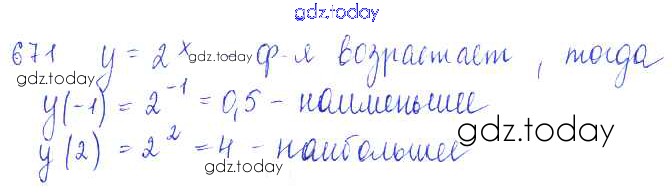 gdz.today
671 y = 2^x gdz.today ф-я возрастает, тогда
gdz.today
y(-1) = 2^-1 = 0,5 - наименьшее
gdz.today
y(2) = 2^2 = 4 - наибольшее
gdz.today